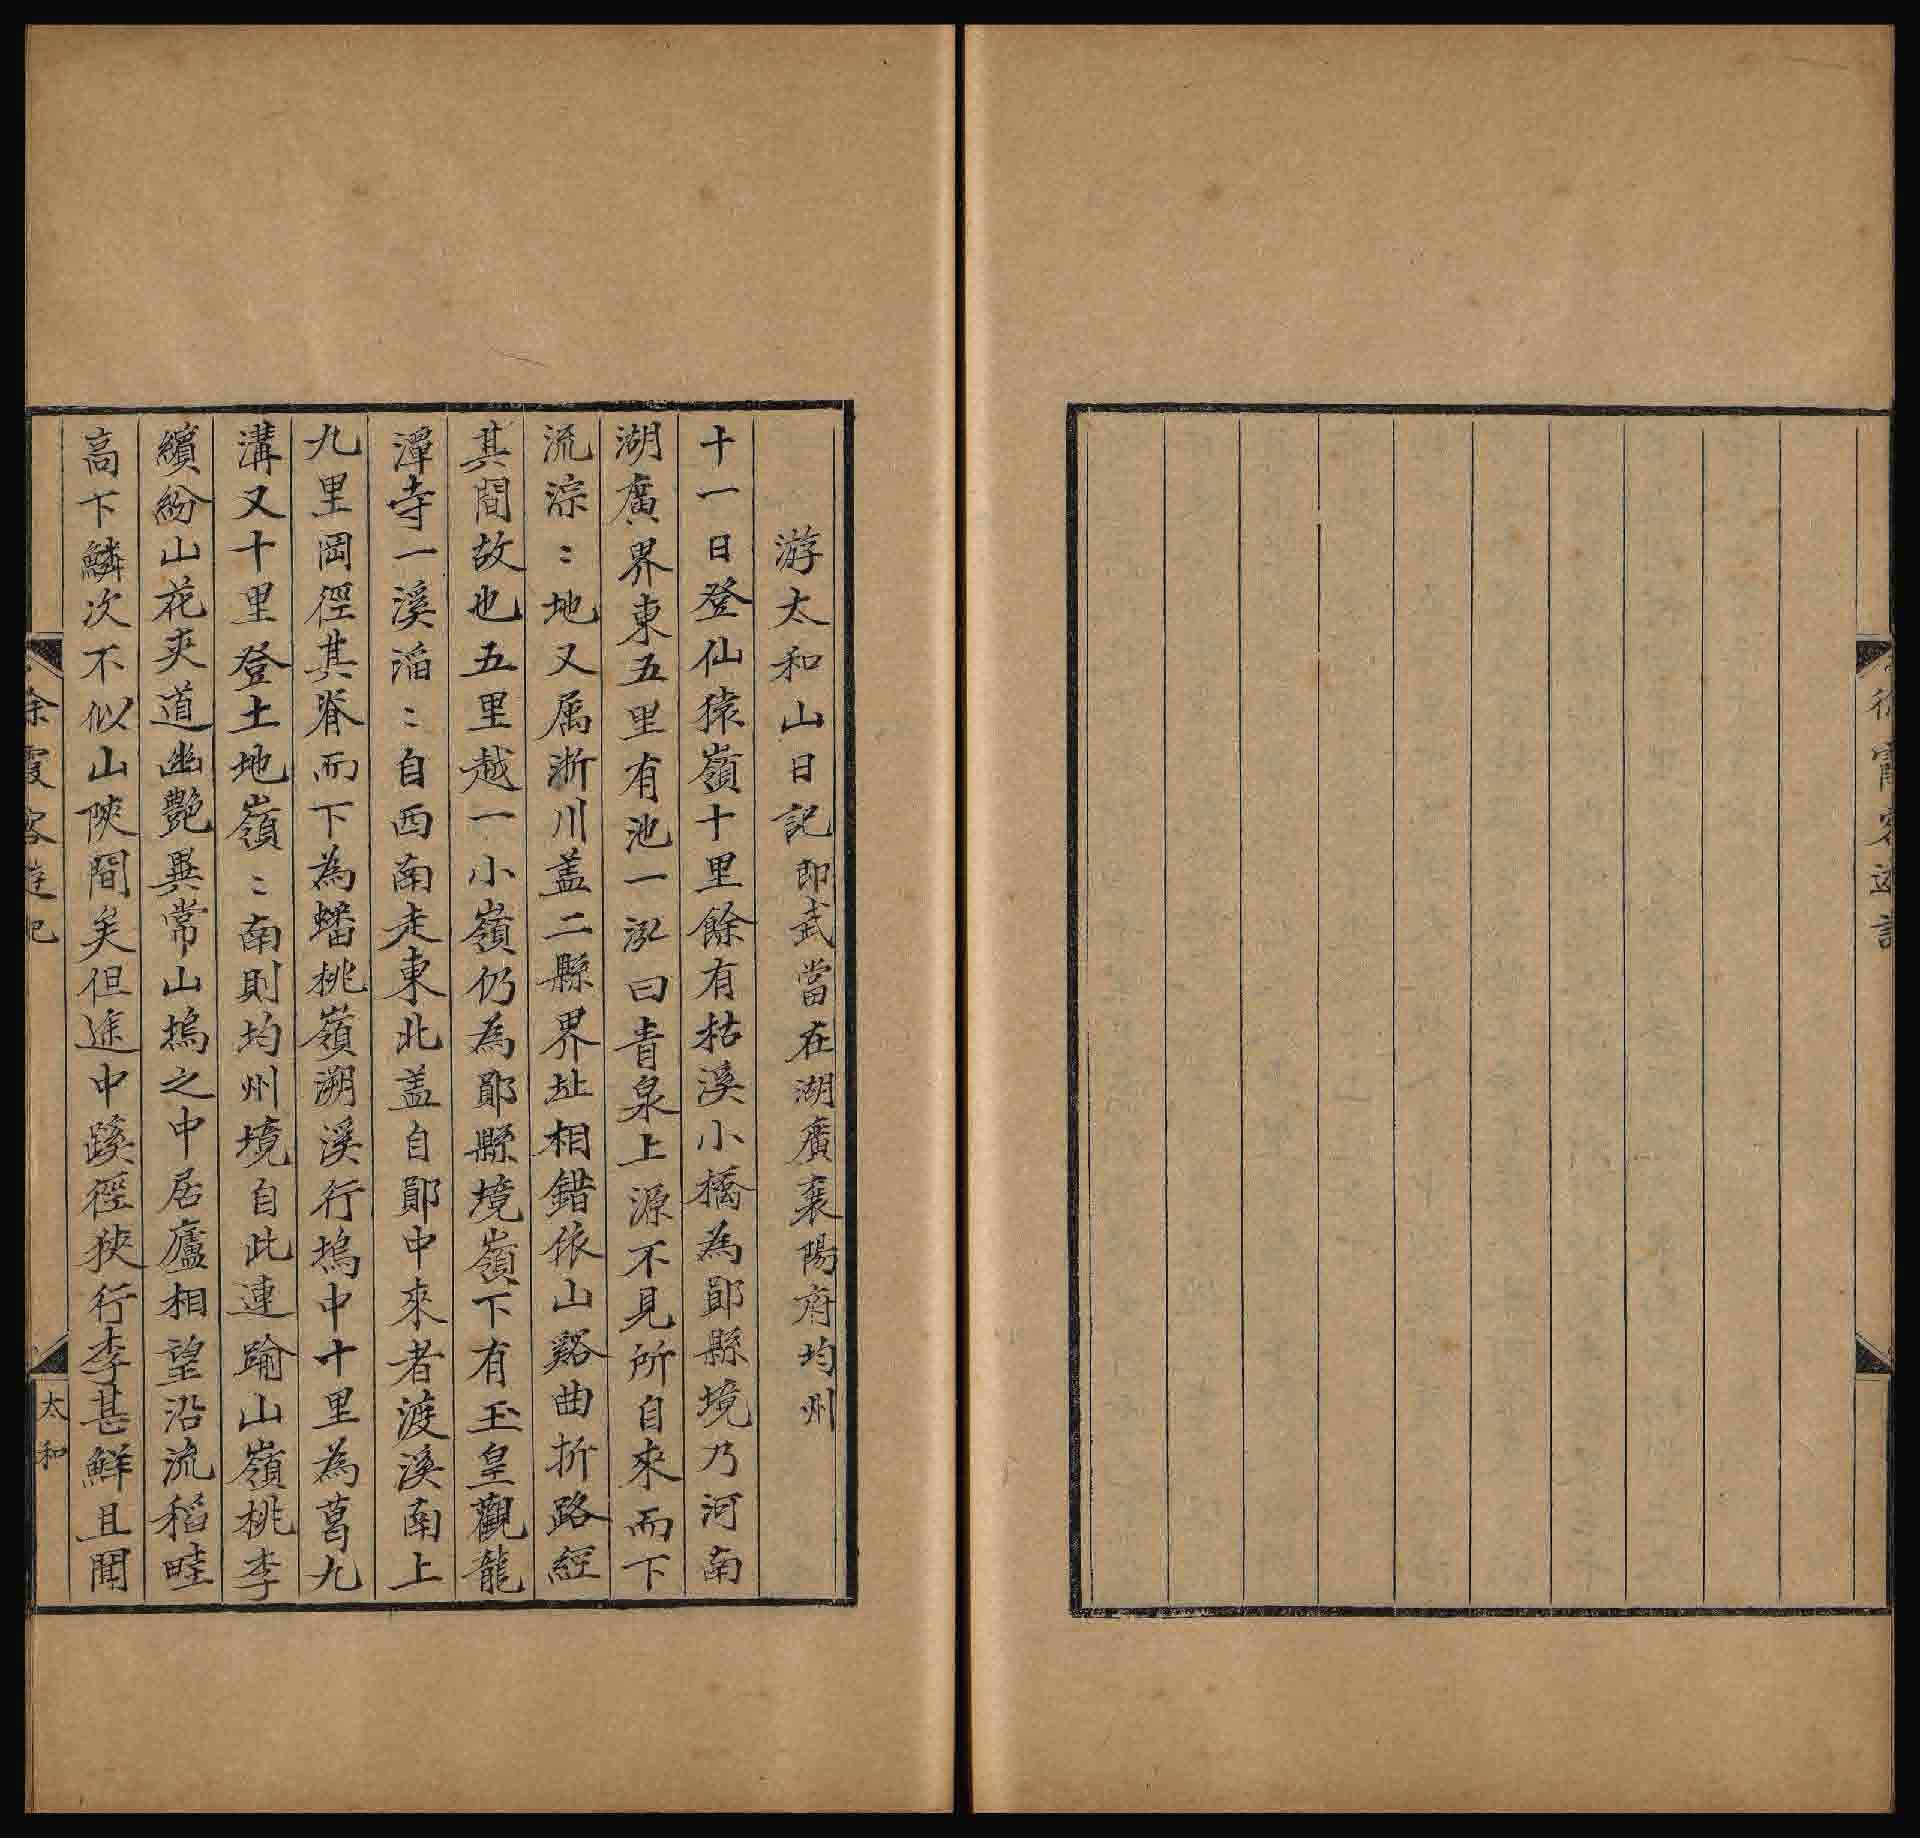 徐霞客遊記
游太和山日記即武當在湖廣襄陽府均州
十一日登仙猿嶺十里餘有枯溪小橋為鄖縣境乃河南
湖廣界東五里有池一泓曰青泉上源不見所自來而下
流淙〻地又属淅川盖二縣界址相錯依山谿曲折路經
其間故也五里越一小嶺仍為鄖縣境嶺下有玉皇觀龍
潭寺一溪滔〻自西南走東北盖自鄖中來者渡溪南上
九里岡徑其脊而下為蟠桃嶺溯溪行塢中十里為葛九
溝又十里登土地嶺〻南則均州境自此連踰山嶺桃李
繽紛山花夾道幽艷異常山塢之中居廬相望沿流稻畦
高下鱗次不似山陝間矣但途中蹊徑狹行李甚鮮且聞
徐霞客遊記
太和